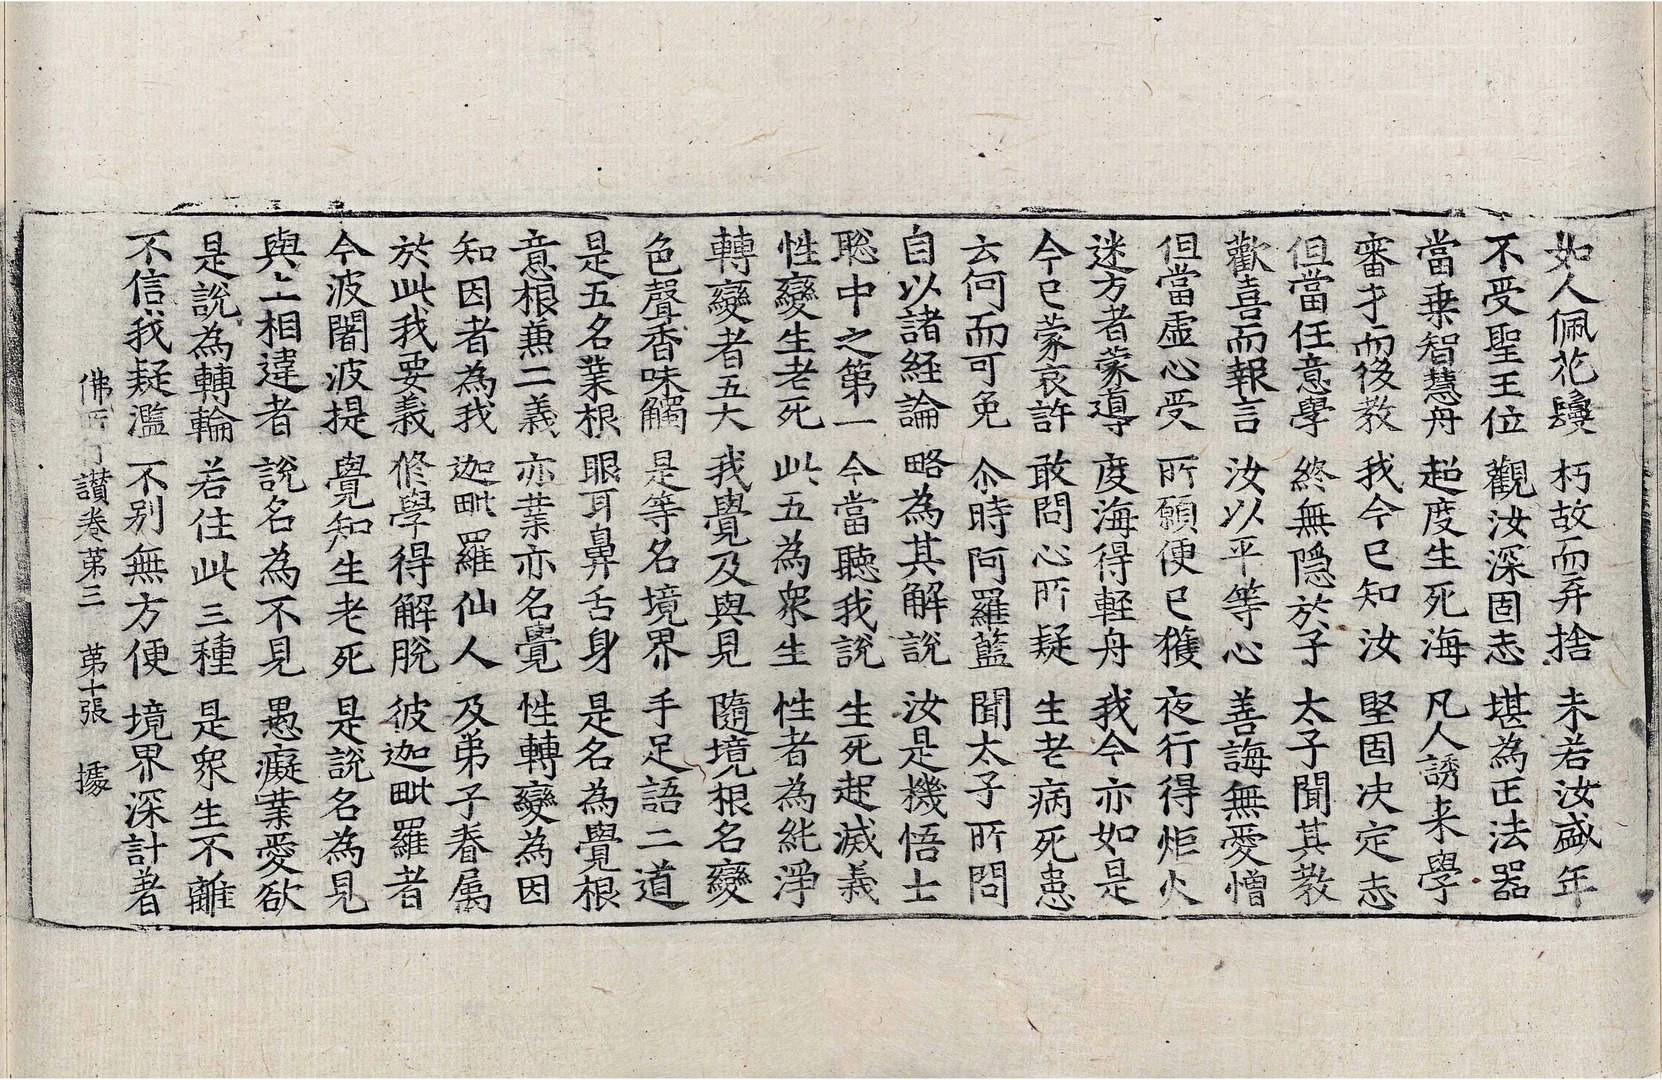 如人佩花鬘 朽故而弃捨 未若汝盛年
不受聖王位 觀汝深固志 堪為正法器
當乗智慧舟 超度生死海 凡人誘来學
審才而後教 我今已知汝 堅固决定志
但當任意學 終無隠於子 太子聞其教
歡喜而報言 汝以平等心 善誨無愛憎
但當虚心受 所願便已獲 夜行得炬火
迷方者蒙導 度海得輕舟 我今亦如是
今已蒙哀許 敢問心所疑 生老病死患
云何而可免 尒時阿羅藍 聞太子所問
自以諸經論 略為其解說 汝是機悟士
聡中之第一 今當聽我說 生死起滅義
性變生老死 此五為衆生 性者為純淨
轉變者五大 我覺及與見 隨境根名變
色聲香味觸 是等名境界 手足語二道
是五名業根 眼耳鼻舌身 是名為覺根
意根兼二義 亦業亦名覺 性轉變為因
知因者為我 迦毗羅仙人 及弟子眷属
於此我要義 修學得解脫 彼迦毗羅者
今波闍波提 覺知生老死 是說名為見
與上相違者 說名為不見 愚癡業愛欲
是說為轉輪 若住此三種 是衆生不離
不信我疑濫 不别無方便 境界深計著
佛所行讃卷第三 第十張 據